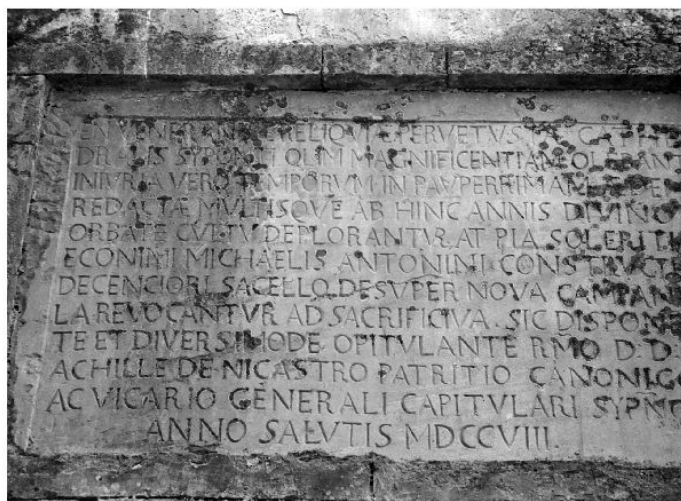 EN VENERANDÆ RELIQVIÆ PERVETVSTÆ CATHE
DRALIS SYPONTI QUM MAGNIFICENTIAM OLERANT
INIVRIA VERO TEMPORVM IN PAVPERRIMAM ÆDE
REDACTÆ MVLTISQVE AB HINC ANNIS DIVINO
ORBATE CVLTV DEPLORANTVR. AT PIA SOLERTI
ECONIMI MICHAELIS ANTONINI CONSTRVCT
DECENCIORI SACELLO DESVPER NOVA CAMPAN
LA REVOCANTVR AD SACRIFICIVA. SIC DISPONE
TE ET DIVERSIMODE OPITVLANTE RMO D. D.
ACHILLE DE NICASTRO PATRITIO CANONICO
AC VICARIO GENERALI CAPITVLARI SYPNT
ANNO SALVTIS MDCCVIII.